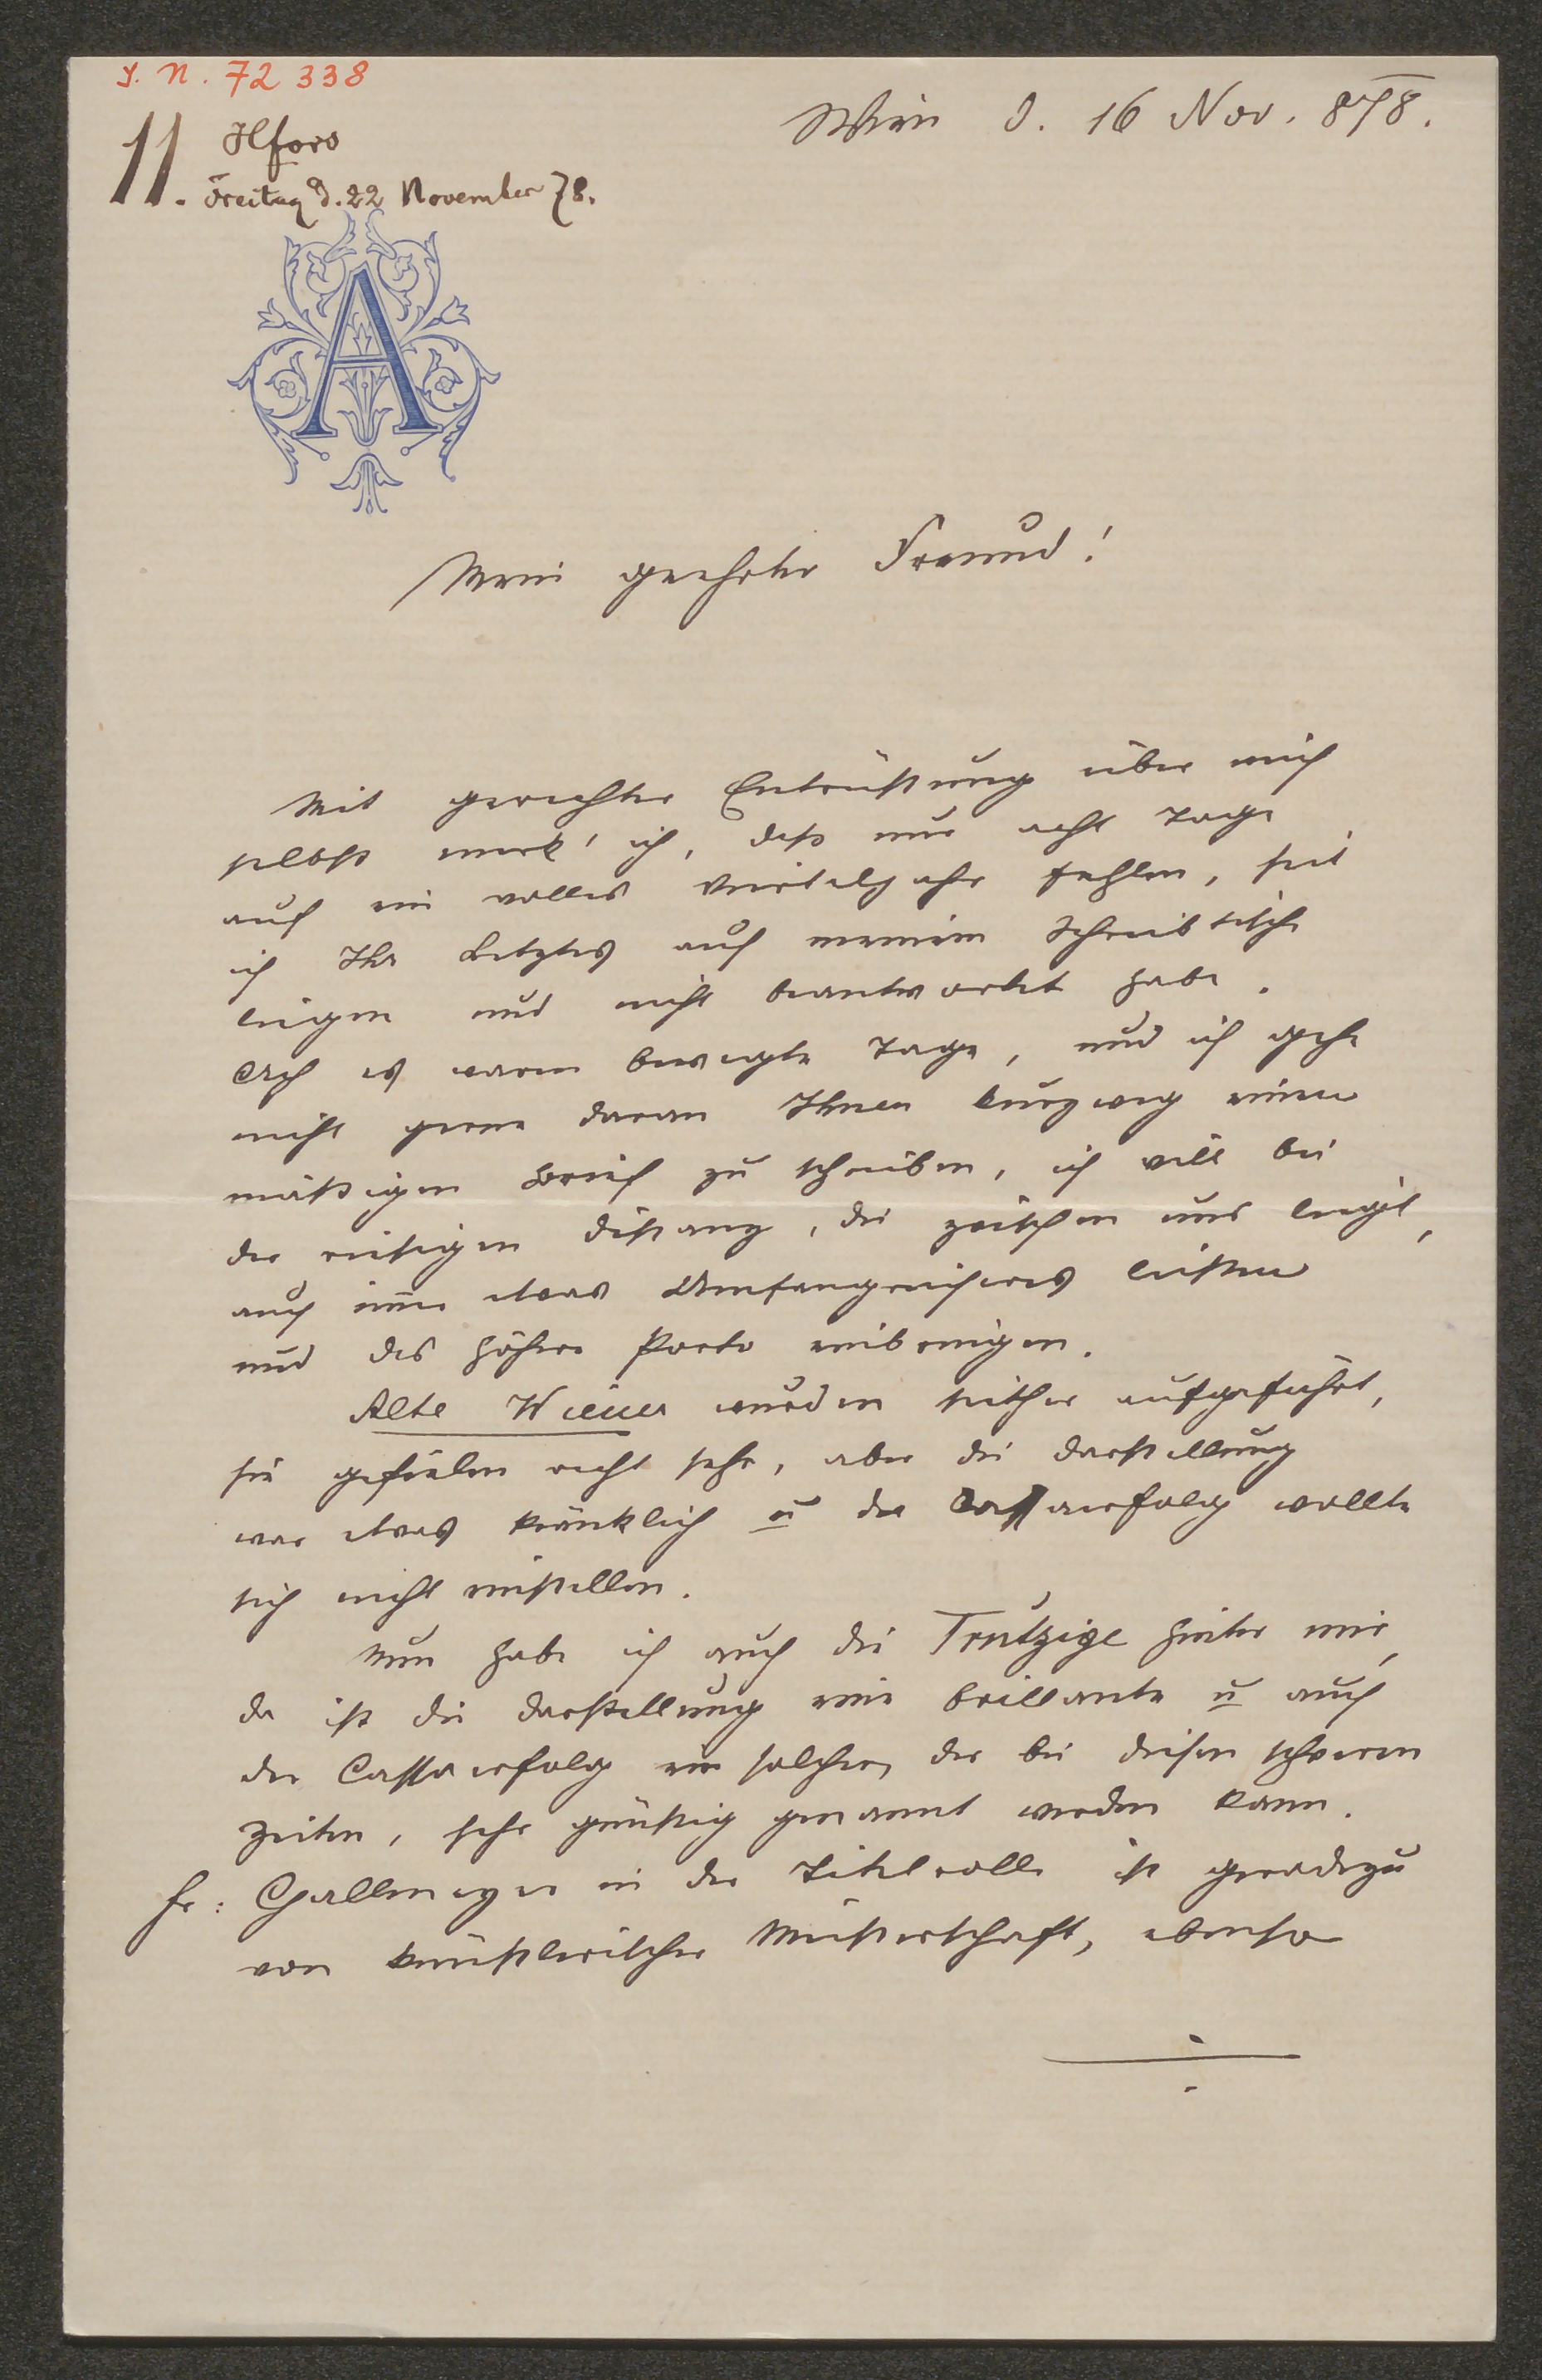 I. N. 72 338
11. Ilfovo
Freitag d. 22 November 78.
Wien d. 16 Nov. 878.
A
Mein geehrter Freund!
Mit gerechter Entrüstung über mich
selbst merk' ich, daß nur acht Tage
auf ein volles Vierteljahr fehlen, seit
ich Ihr Letztes auf meinem Schreibtische
liegen und nicht beantwortet habe.
Ach es waren bewegte Tage, und ich gehe
nicht gerne daran Ihnen kurzweg einen
mäßigen Brief zu schreiben, ich will bei
der riesigen Distanz, die zwischen uns liegt,
auch imer etwas Umfangreicheres leisten
und das höhere Porto einbringen.
Alte Wiener wurden seither aufgeführt,
sie gefielen recht sehr, aber die Darstellung
war etwas kränklich u der Cassaerfolg wollte
sich nicht einstellen.
Nun habe ich auch die Trutzige hinter mir,
da ist die Darstellung eine brillante u auch
der Cassaerfolg ein solcher, der bei diesen schweren
Zeiten, sehr günstig genannt werden kann.
Fr: Gallmeyer in der Titelrolle ist geradezu
von künstlerischer Meisterschaft, ebenso